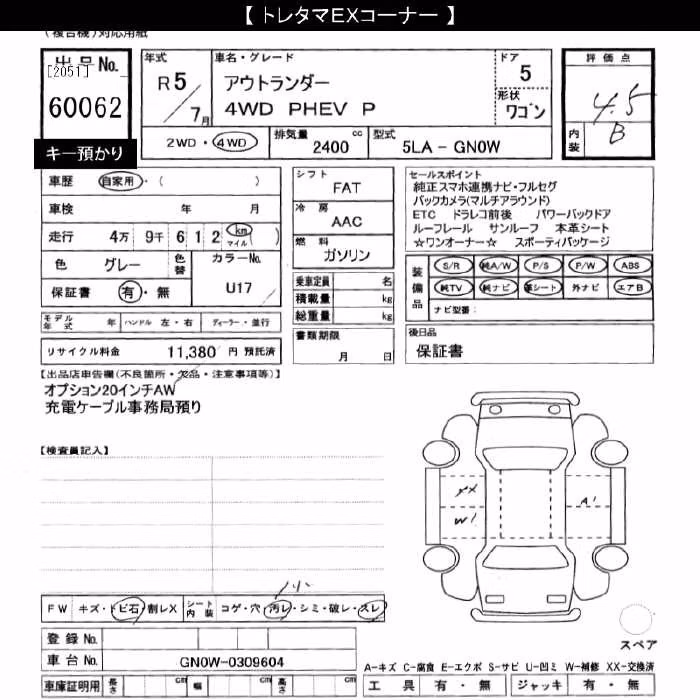 【 トレタマEXコーナー 】
(複合機)対応用紙
出品No.
[2051]
60062
キー預かり
年式
R5/7月
車名・グレード
アウトランダー
4WD PHEV P
ドア
5
形状
ワゴン
評価点
4.5
内装
B
2WD・4WD
排気量 2400 cc
型式 5LA - GN0W
車歴 自家用・( )
車検 年 月
走行 4万 9千 6 1 2 km マイル ( )
色 グレー 色替
カラーNo. U17
保証書 有・無
モデル年式 年 ハンドル 左・右 ディーラー・並行
リサイクル料金 11,380 円 預託済
シフト
FAT
冷房
AAC
燃料
ガソリン
乗車定員 名
積載量 kg
総重量 kg
書類期限
月 日
セールスポイント
純正スマホ連携ナビ・フルセグ
バックカメラ(マルチアラウンド)
ETC ドラレコ前後 パワーバックドア
ルーフレール サンルーフ 本革シート
☆ワンオーナー☆ スポーティパッケージ
装備品
S/R 純A/W P/S P/W ABS
純TV 純ナビ 革シート 外ナビ エアB
ナビ型番:
後日品
保証書
【出品店車告欄(不良箇所・欠品・注意事項等)】
オプション20インチAW
充電ケーブル事務局預り
【検査員記入】
XX
W1
A1
FW キズ・トビ石・割レX シート内装 コゲ・穴・汚レ・シミ・破レ・スレ
登録No.
車台No. GN0W-0309604
車庫証明用 長さ cm 幅 cm 高さ cm
スペア
A-キズ C-腐食 E-エクボ S-サビ U-凹ミ W-補修 XX-交換済
工具 有・無 ジャッキ 有・無